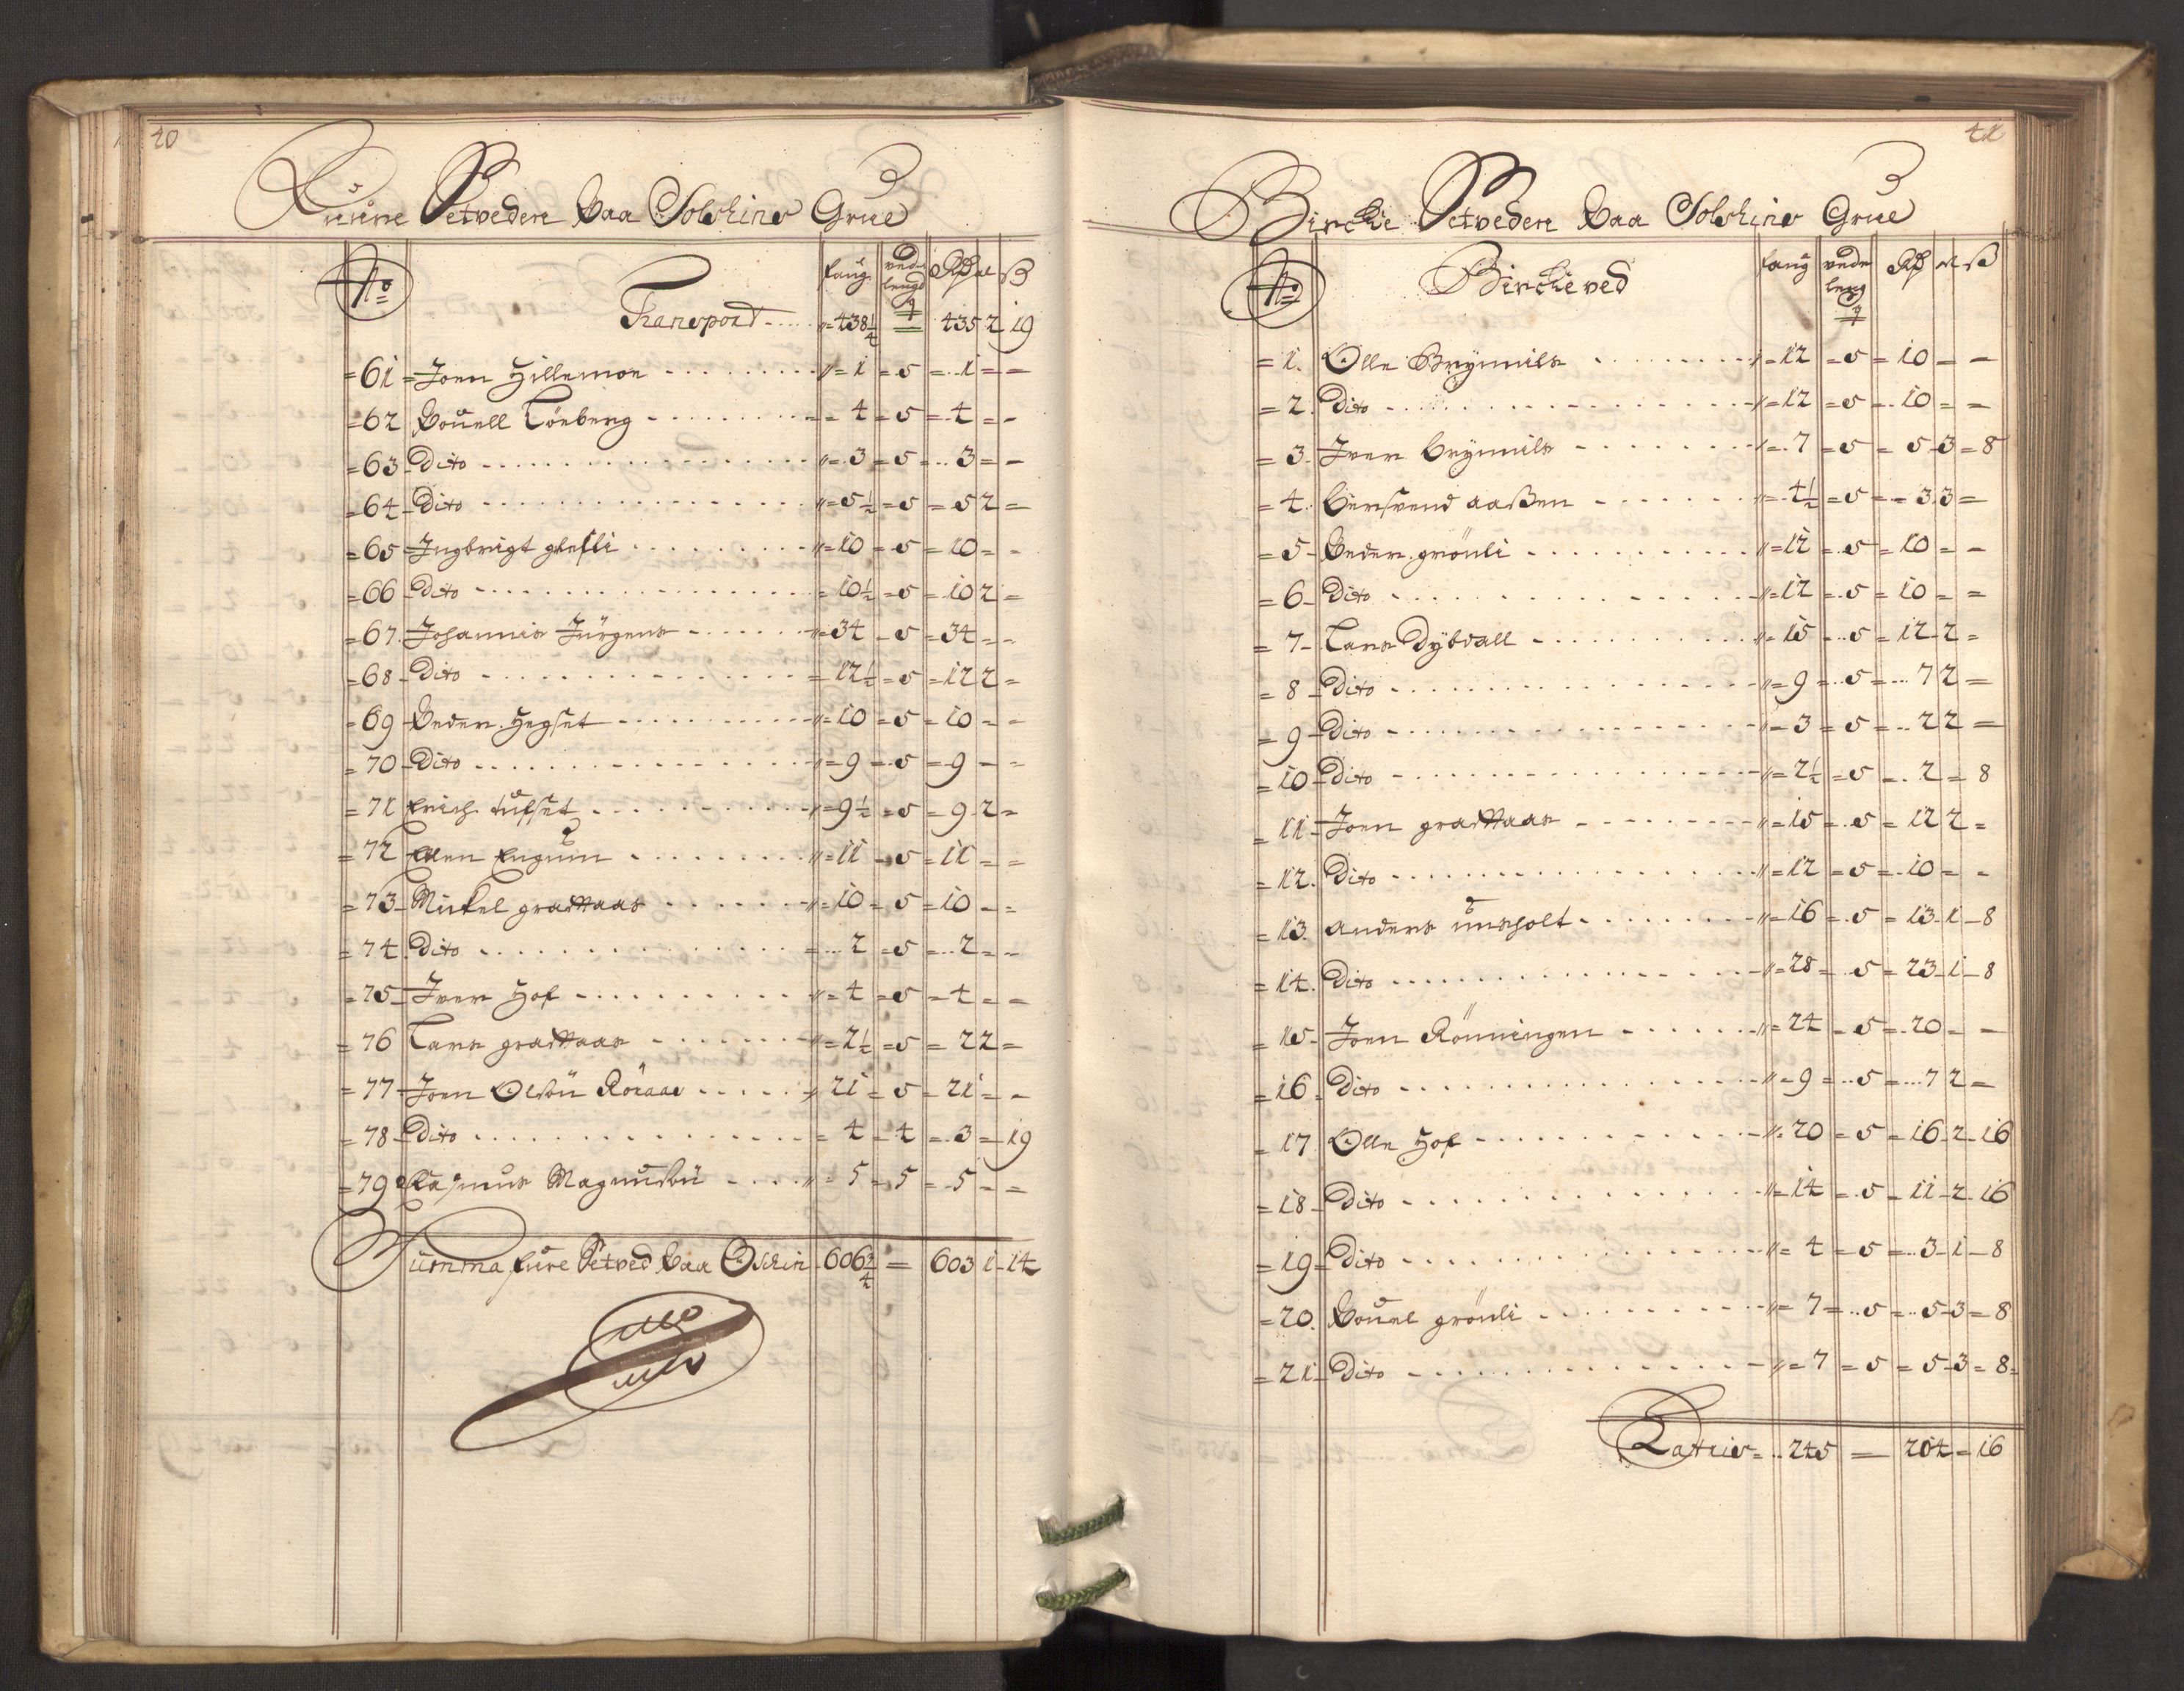 40
Fuure Setveden Paa Solskins Grue
No faug vede lengd q Rdr M ß
Transport - - " = 438 1/4 = 435 2 19
= 61 = Joen Hillemoe - - - " = 1 = 5 = 1 = -
= 62 Pouell Löeberg - - - = 4 = 5 = 4 = -
= 63 - Dito - - - " = 3 = 5 = 3 = -
= 64 - Dito - - - " = 5 1/2 = 5 = 5 2 =
= 65 - Ingbrigt gleslli - - - " = 10 = 5 = 10 = -
= 66 - Dito - - - = 10 1/2 = 5 = 10 2 =
= 67 - Johannis Jürgens - - - " = 34 - 5 = 34 = -
= 68 - Dito - - - = 12 1/2 = 5 = 12 2 =
= 69 - Peder Hegset - - - " = 10 = 5 = 10 - -
= 70 - Dito - - - " = 9 = 5 = 9 - -
= 71 Erich tufset - - - " = 9 1/2 = 5 = 9 2 =
= 72 Ellen Engum - - - " = 11 = 5 = 11 - -
= 73 - Mickel grasttaas - - - " = 10 = 5 = 10 - -
= 74 Dito - - - = 2 = 5 = 2 = -
= 75 - Iver Hof - - - " = 4 = 5 = 4 = -
= 76 Lars grasttaas - - - " = 2 1/2 = 5 = 2 2 =
= 77 - Joen Olsön Röraas - - - " 21 = 5 = 21 = -
= 78 - Dito - - - = 4 = 4 = 3 = 19
= 79 Rasmus Magnusön - - - " = 5 = 5 = 5 - =
Summa fure Setved Paa Solskin 606 3/4 = 603 1 - 14
41
Bircke Setveden Paa Solskins Grue
No Bircke ved faug vede leng q Rdr M ß
= 1. Olle Brynnils - - - " = 12 = 5 = 10 - -
= 2. Dito - - - " = 12 = 5 = 10 = -
= 3. Iver Brynnils - - - " = 7 = 5 = 5 3 = 8
= 4. Bersvend aaßen - - - " = 4 1/2 = 5 = 3 3 =
= 5 - Peder grönli - - - " = 12 = 5 = 10 - -
= 6 - Dito - - - " = 12 = 5 = 10 = =
= 7 - Lars Dÿbdall - - - " = 15 = 5 = 12 2 =
= 8 - Dito - - - " = 9 = 5 = 7 2 =
= 9 - Dito - - - " = 3 = 5 = 2 2 =
= 10 - Dito - - - " = 2 1/2 = 5 = 2 = 8
= 11 - Joen grasttaas - - - " = 15 = 5 = 12 2 =
= 12. Dito - - - " = 12 = 5 = 10 = -
= 13. anders unsholt - - - " = 16 = 5 = 13 - 1 - 8
= 14. Dito - - - " = 28 = 5 = 23 - 1 - 8
= 15 - Joen Rönningen - - - " = 24 = 5 = 20 - -
= 16 Dito - - - " = 9 = 5 = 7 2 =
= 17 Olle Hof - - - " = 20 = 5 = 16 - 2 - 16
= 18 - Dito - - - " = 14 = 5 = 11 - 2 - 16
= 19 - Dito - - - " = 4 = 5 = 3 - 1 - 8
= 20. Pouel grönli - - - " = 7 = 5 = 5 - 3 = 8
= 21 - Dito - - - " = 7 = 5 = 5 - 3 = 8
Lateris = 245 = 204 = 16